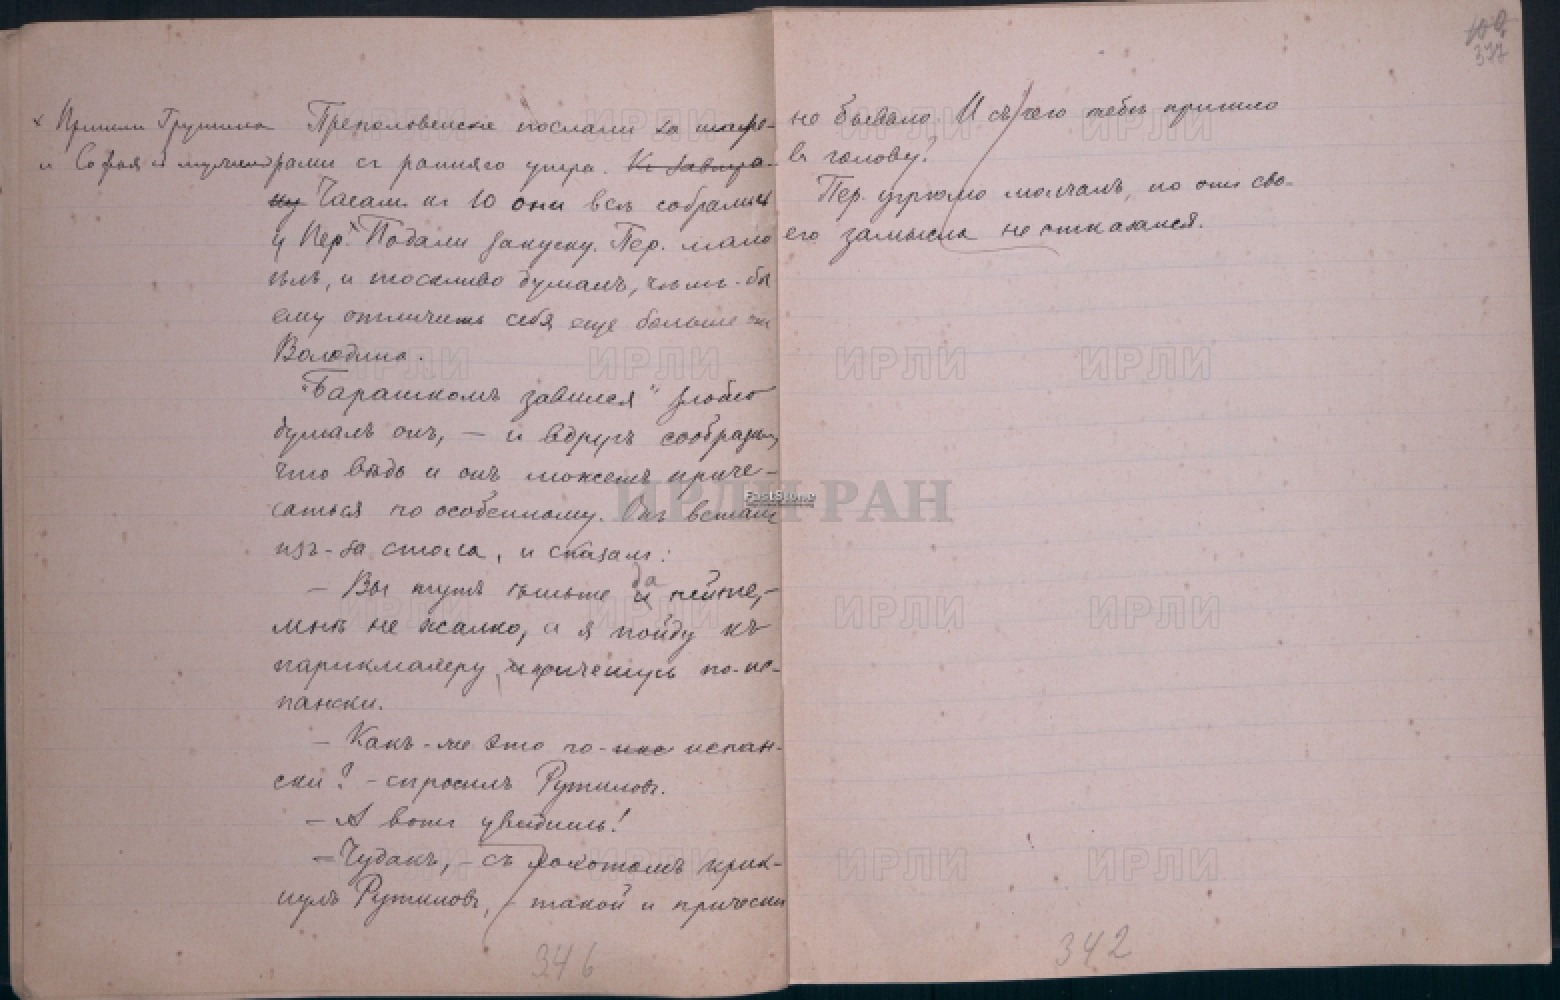 × Пришли Грушина
и Софья с мужем
Преполовенскіе послали за шафе-
рами съ ранняго утра. Къ завтра-
ку Часам къ 10 они всѣ собрались
у Пер.× Подали закуску. Пер. мало
ѣлъ, и тоскливо думалъ, чѣмъ-бы
ему отличить себя еще больше от
Володина.
"Барашкомъ завился" злобно
думалъ онъ, — и вдругъ сообразилъ,
что вѣдь и онъ можетъ приче-
саться по особенному. Онъ всталъ
изъ-за стола, и сказалъ:
— Вы тутъ ѣшьте и да пейте, —
мнѣ не жалко, а я пойду къ
парикмахеру, и причешусь по-ис-
пански.
— Какъ-же это по-исп испан-
ски? — спросилъ Рутиловъ.
— А вотъ увидишь!
— Чудакъ, — съ хохотомъ крик-
нулъ Рутиловъ, — такой и прически
не бывало. И съ чего тебѣ пришло
въ голову?
Пер. угрюмо молчалъ, но отъ сво-
его замысла не отказался.
377
346
342
ИРЛИ РАН
FastStone
ИРЛИ ИРЛИ ИРЛИ ИРЛИ
ИРЛИ ИРЛИ ИРЛИ ИРЛИ
ИРЛИ ИРЛИ ИРЛИ ИРЛИ
ИРЛИ ИРЛИ ИРЛИ ИРЛИ